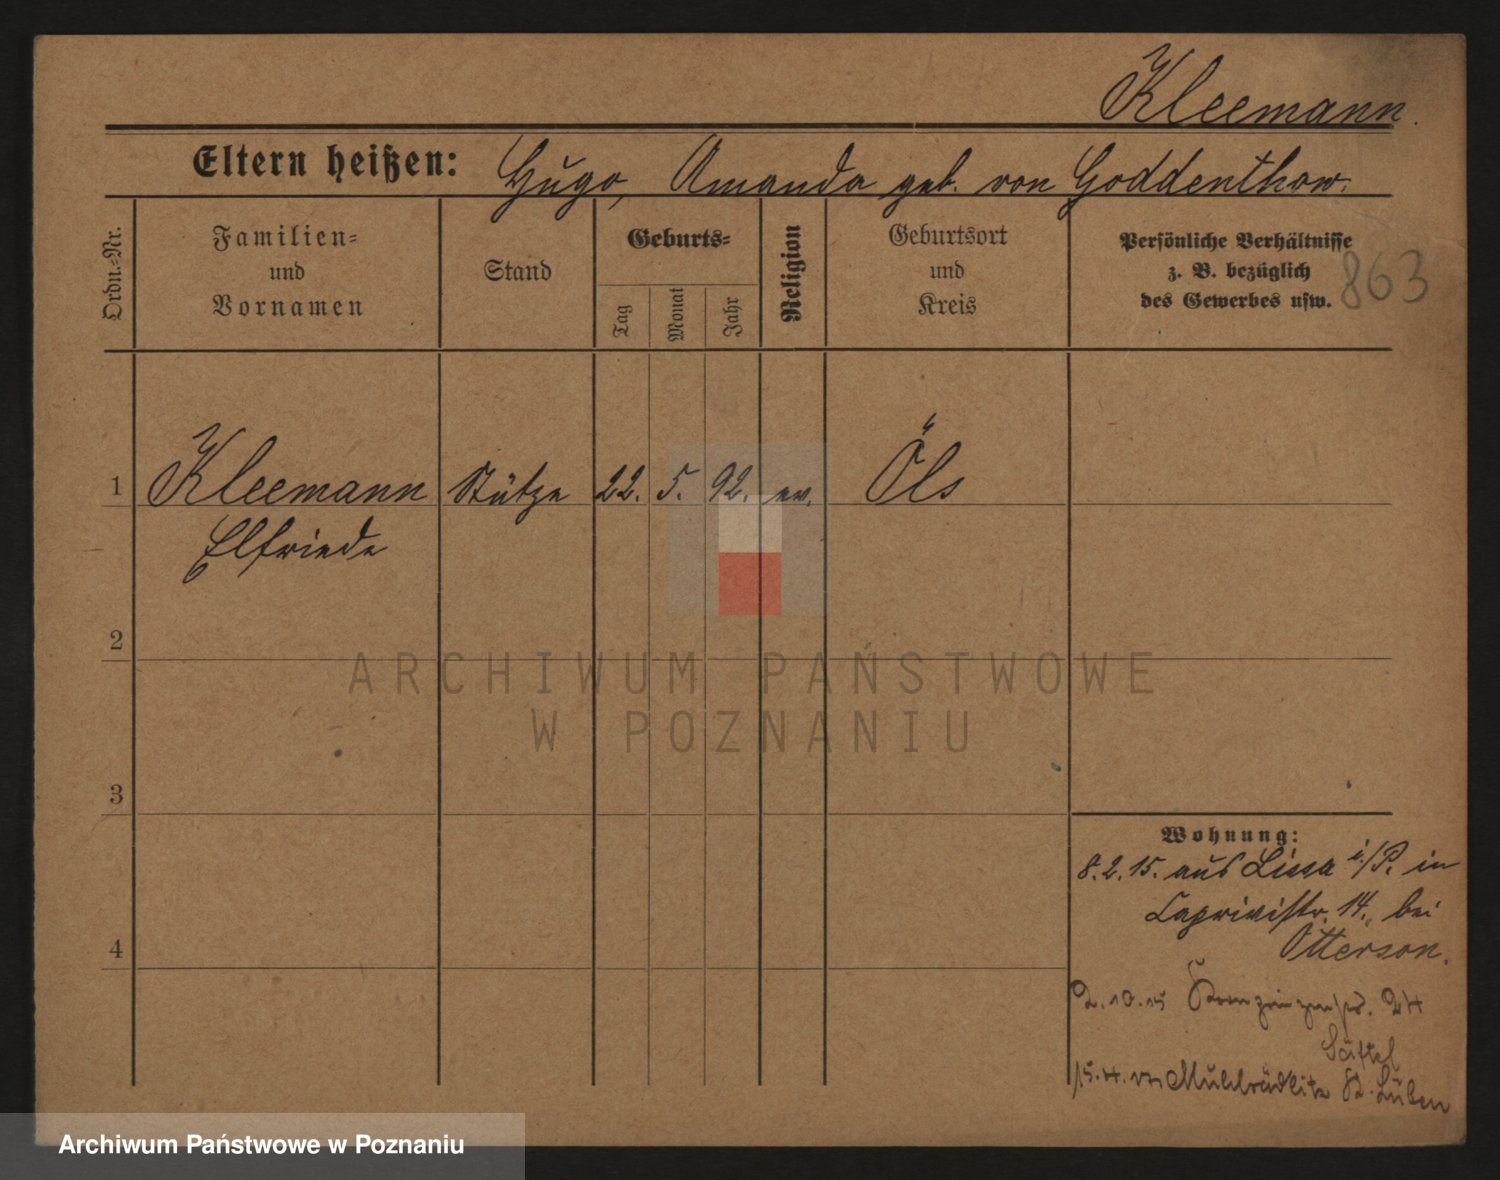 Kleemann.
Eltern heißen: Hugo, Amanda geb. von Goddenthow.
Ordn.-Nr.
Familien-
und
Vornamen
Stand
Geburts-
Tag
Monat
Jahr
Religion
Geburtsort
und
Kreis
Persönliche Verhältnisse
z. B. bezüglich
des Gewerbes usw.
863
1 Kleemann Stütze 22. 5. 92. ev. Öls
Elfriede
2
3
4
Wohnung:
8.2.15. aus Lissa i/P. in
Caprivistr. 14. bei
Otterson.
2.10.15 Kronprinzenstr. 24
15.4.17 Mühlrädlitz Kr. Lüben
ARCHIWUM PAŃSTWOWE
W POZNANIU
Archiwum Państwowe w Poznaniu